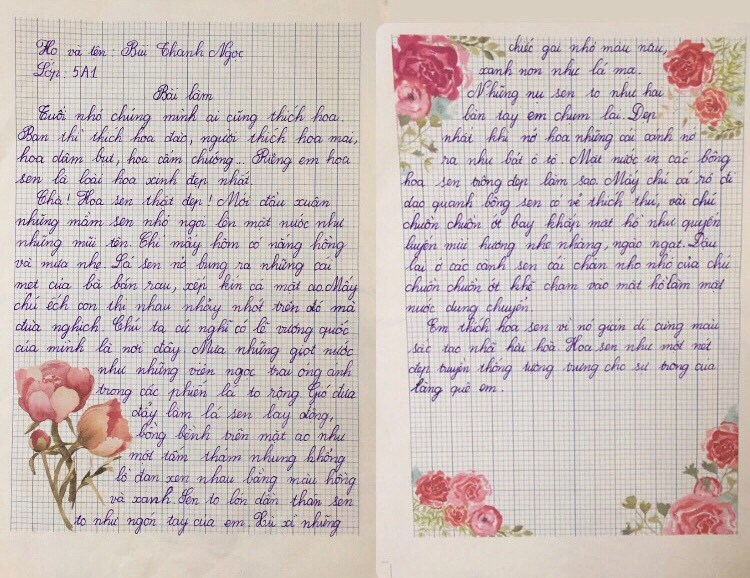 Họ và tên : Bùi Thanh Ngọc
Lớp : 5A1
Bài làm
Tuổi nhỏ chúng mình ai cũng thích hoa.
Bạn thì thích hoa đào, người thích hoa mai,
hoa dâm bụt, hoa cẩm chướng... Riêng em hoa
sen là loài hoa xinh đẹp nhất.
Chà! Hoa sen thật đẹp! Mới đầu xuân
những mầm sen nhỏ ngoi lên mặt nước như
những mũi tên. Chỉ mấy hôm có nắng hồng
và mưa nhẹ. Lá sen nở bung ra những cái
mẹt của bà bán rau, xếp kín cả mặt ao. Mấy
chú ếch con thi nhau nhảy nhót trên đó mà
đùa nghịch. Chú ta cứ nghĩ có lẽ vương quốc
của mình là nơi đây. Mưa những giọt nước
như những viên ngọc trai óng ánh
trong các phiến lá to rộng. Gió đưa
đẩy làm lá sen lay động,
bồng bềnh trên mặt ao như
một tấm thảm nhung khổng
lồ đan xen nhau bằng màu hồng
và xanh. Sen to lớn dần thân sen
to như ngón tay của em. Xù xì những
chiếc gai nhỏ màu nâu,
xanh non như lá mạ.
Những nụ sen to như hai
bàn tay em chụm lại. Đẹp
nhất khi nở hoa những cái xanh nở
ra như bát ô tô. Mặt nước in các bông
hoa sen trông đẹp làm sao. Mấy chú cá rô đi
dạo quanh bông sen có vẻ thích thú, vài chú
chuồn chuồn ớt bay khắp mặt hồ như quyến
luyến mùi hương nhẹ nhàng, ngào ngạt. Đậu
lại ở các cánh sen cái chân nho nhỏ của chú
chuồn chuồn ớt khẽ chạm vào mặt hồ làm mặt
nước dung chuyển.
Em thích hoa sen vì nó giản dị cùng màu
sắc tao nhã hài hoà. Hoa sen như một nét
đẹp truyền thống tượng trưng cho sự trong của
làng quê em.